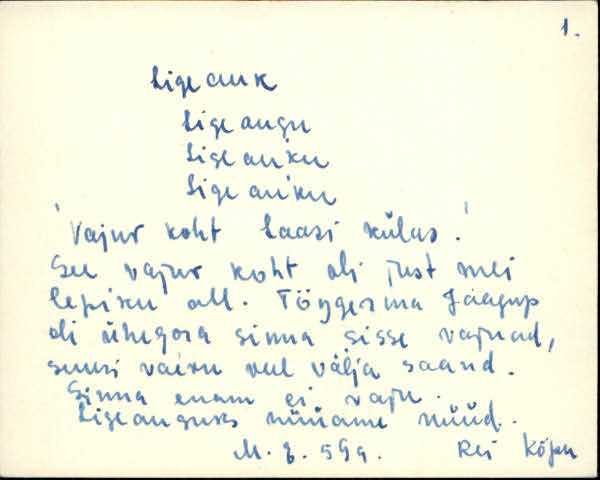 1.
Ligeauk
Ligeaugu
Ligeau'ku
Ligeau'ku
'Vajuv koht Laasi külas.'
See vajuv koht oli just mei
lepiku all. Tõygerma Jaagup
oli ühegora sinna sisse vajnud,
suuri vaivu veel välja saand.
Sinna enam ei vaju.
Ligeauguks nüüame nüüd.
M. 59a. Rei Kõpu